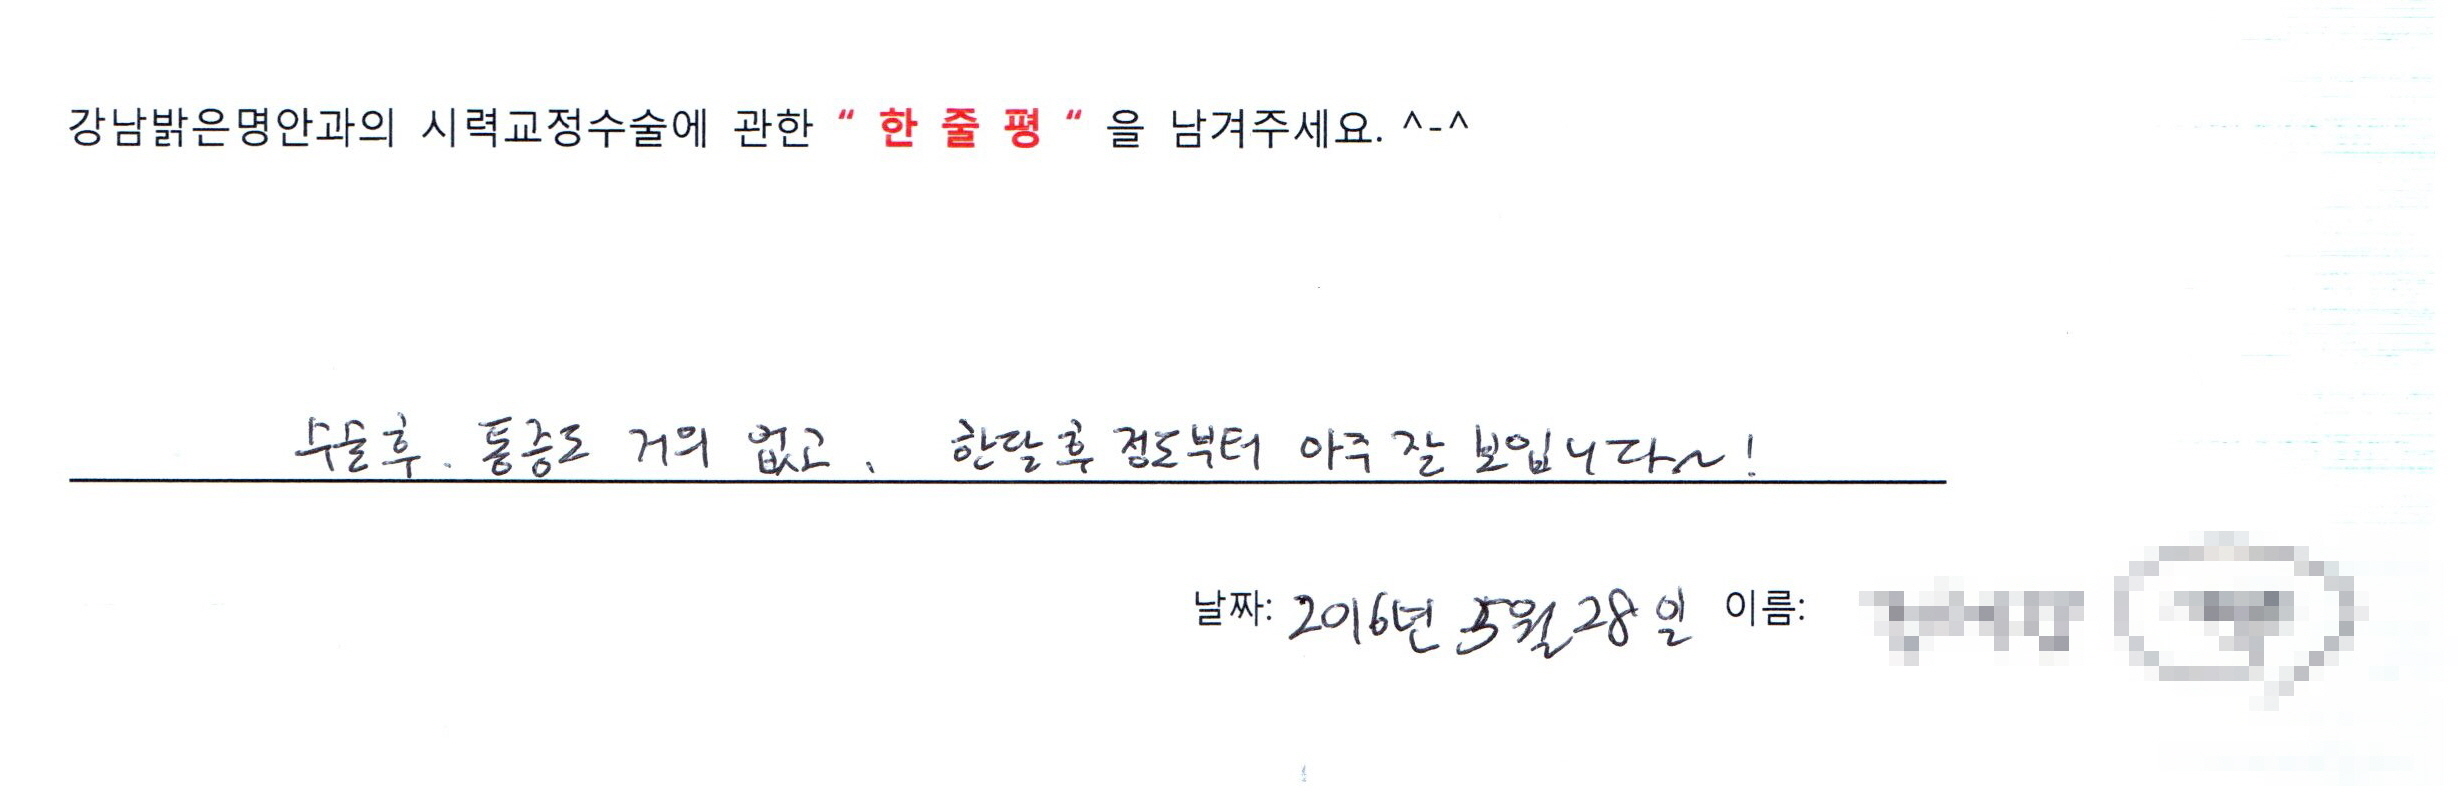 강남밝은명안과의 시력교정수술에 관한 " 한 줄 평 " 을 남겨주세요. ^-^
수술후. 통증도 거의 없고, 한달 후 정도부터 아주 잘 보입니다~!
날짜: 2016년 5월 28일 이름: